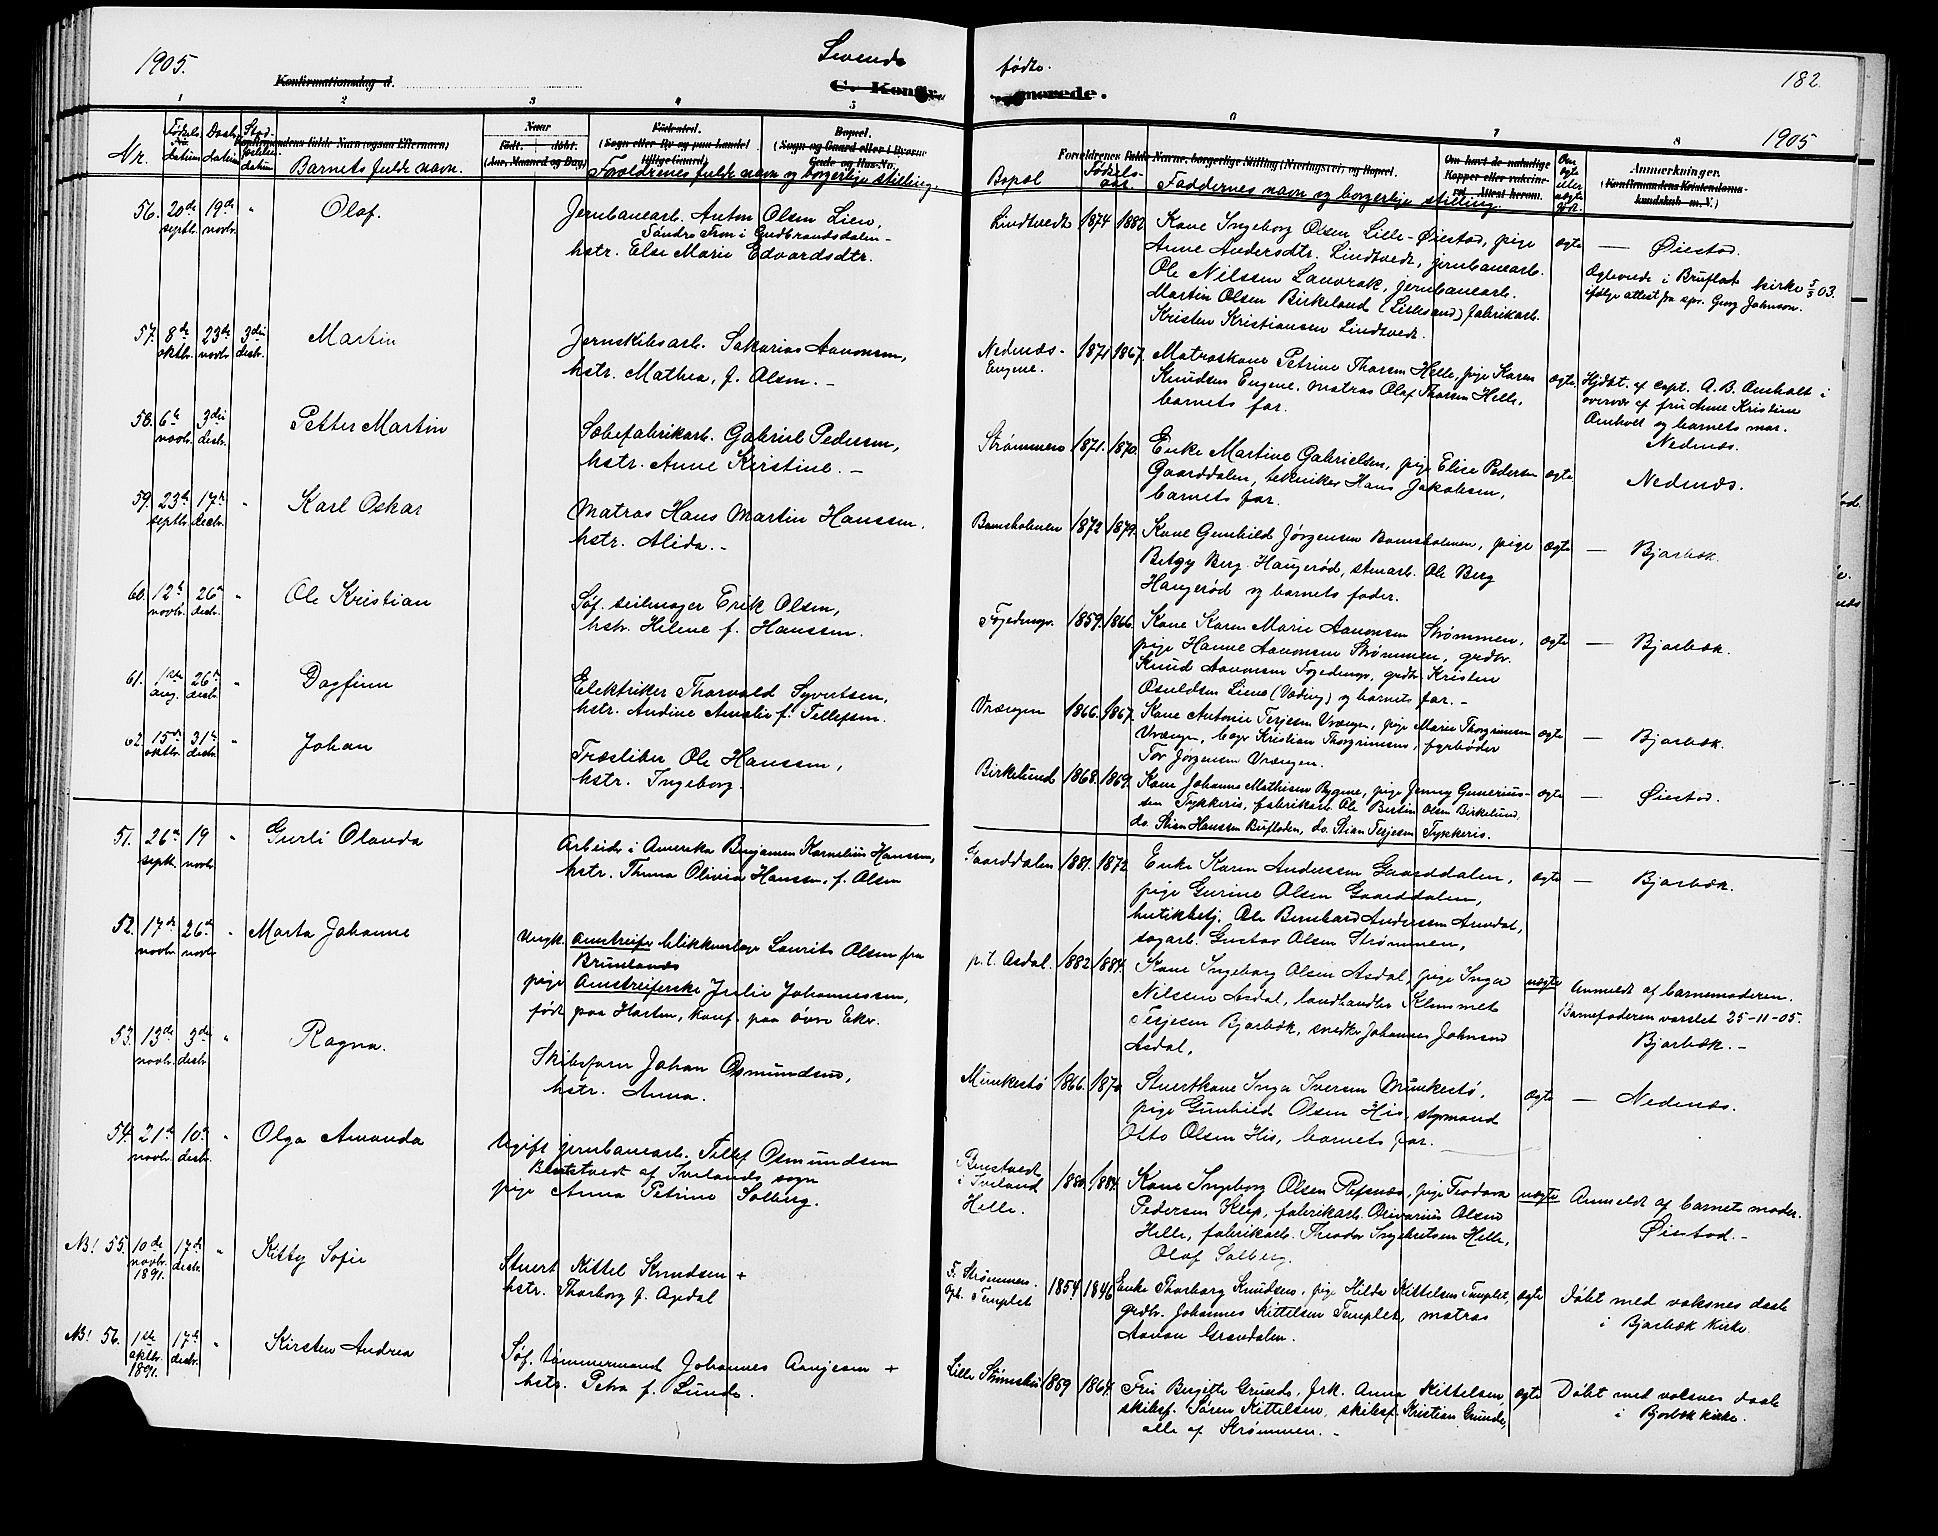 1905.
Levende
fødte.
182.
Konfirmationsdag d.
C. Konfir
merede.
1 2 3 4 5
6 7 8
1905
Nr.
Fødsels datum
Daabs datum
Barnets fulde navn.
Naar
Født. døbt.
(Aar, Maaned og Dag)
Fødested.
(Sogn eller By og paa Landet tillige Gaard)
Bopæl.
(Sogn og Gaard eller i Byerne Gade og Hus-No.
Foreldrenes fulde navn og borgerlige stilling
Bopæl
Fødsels-aar
Forældrenes fulde Navne, borgerlige Stilling (Næringsvei) og Bopæl.
Faddernes navn og borgerlige stilling.
Om havt de naturlige Kopper eller vakcine-ret. Attest herom.
Om ægte eller uægte født.
Anmerkninger.
(Konfirmandens Kristendoms-kundskab m. V.)
56. 20de septbr. 19de novbr. " Olaf.
Jernbanearb. Anton Olsen Lien,
Søndre Fron i Gudbrandsdalen-
hstr. Else Marie Edvardsdtr.
Lindtvedt 1874 1882
Kone Ingeborg Olsen Lille-Øiestad, pige
Anne Andersdtr. Lindtvedt, jernbanearb.
Ole Nilsen Lauvrak, jernbanearb.
Martin Olsen Birkeland (Lillesand) fabrikarb.
Kristen Kristiansen Lindtvedt.
ægte — Øiestad.
Ægteviede i Bruflat kirke 5/3 03.
ifølge attest fra spr. Johnson.
57. 8de oktbr. 23de novbr. 3die desbr. Martin
Jernskibsarb. Sakarias Aanonsen,
hstr. Mathea, f. Olsen. -
Nedenæs-Engene. 1871 1867.
Matroskone Petrine Thorsen Helle, pige Karen
Knudsen Engene, matros Olaf Thorsen Helle,
barnets far.
ægte. Hjdbt. af capt. A. B. Amholt i
overvær af fru Anne Kristine
Amholt og barnets mor.
Nedenæs.
58. 6te novbr. 3die desbr. Petter Martin
Sæbefabrikarb. Gabriel Pedersen,
hstr. Anne Kirstine. -
Strømmen 1871. 1870.
Enke Martine Gabrielsen, pige Elise Pedersen
Gaarddalen, tekniker Hans Jakobsen,
barnets far.
ægte Nedenæs.
59. 23de septbr. 17de desbr. " Karl Oskar
Matros Hans Martin Hanssen.
hstr. Alida. -
Bomsholmen 1872 1879.
Kone Gunhild Jørgensen Bomsholmen, pige
Betzy Berg Haugerød, stenarb. Ole Berg
Haugerød og barnets fader.
ægte — Bjorbæk.
60. 12te novbr. 26de desbr. " Ole Kristian
Søf. seilmager Erik Olsen,
hstr. Helene f. Hanssen.
1859. 1866.
Kone Karen Marie Aanonsen Strømmen,
pige Hanne Aanonsen Strømmen, grdbr.
Knud Aanonsen, grdbr. Kristen
Osuldsen Liene og barnets far. -
ægte — Bjorbæk.
61. 1ste aug. 26de desbr. " Dagfinn
Elektriker Thorvald Syvertsen,
hstr. Andine Amalie f. Tellefsen.
Vrængen 1866. 1867.
Kone Antonie Terjesen Vrængen, pige Marie Thorgrimsen
Vrængen, bager Kristian Thorgrimsen, fyrbøder
Tor Jørgensen Vrængen.
ægte — Bjorbæk.
62. 15de oktbr. 31te desbr. " Johan
Træsliber Ole Hanssen,
hstr. Ingeborg.
Birkelund 1868. 1869.
Kone Johanne Mathisen Rygene, pige Jenny Gunerius-
sen Tykkeris, fabrikarb. Ole Bertin Olsen Birkelund.
do. Stian Hanssen Bufladen, do. Stian Terjesen Tykkeris.
ægte — Øiestad.
51. 26de septb. 19 novbr. " Gurli Olanda
Arbeider i Amerika Benjamin Kornelius Hanssen,
hstr. Thina Olivia Hanssen, f. Olsen
Gaarddalen 1881. 1872.
Enke Karen Anderssen Gaarddalen,
pige Gurine Olsen Gaarddalen,
butikbetj. Ole Bernhard Anderssen Arendal,
sagarb. Gustav Olsen Strømmen,
ægte — Bjorbæk.
52. 17de novbr. 26de novbr. " Marta Johanne
Ungk. omstreifer blikkenslager Laurits Olsen fra
Brunlanes
pige Omstreiferske Julie Johannessen,
født paa Horten, konf. paa øvre Eker.
p.t. Asdal. 1882 1884.
Kone Ingeborg Olsen Asdal, pige Inga
Nilssen Asdal, landhandler Klemmet
Terjesen Bjorbæk, snedker Johannes Johnsen
Asdal,
uægte Anmeldt af barnemoderen.
Barnefaderen varslet 25-11-05.
Bjorbæk. -
53. 13de novbr. 3de desbr. " Ragna.
Skibsfører Johan Osmundsen,
hstr. Anna.
Munkestø 1866. 1870
Stuertkone Inga Iversen Munkestø,
pige Gunhild Olsen His, styrmand
Otto Olsen His, barnets far.
ægte — Nedenæs.
54. 21de novbr. 10de desbr. " Olga Amanda
Ugift jernbanearb. Tellef Osmundsen
Benstvedt af Ivelands sogn
pige Anna Petrine Solberg.
Benstvedt
i Iveland 1880. 1884.
Helle.
Kone Ingeborg Olsen Refsnæs, pige Teodora
Pedersen Keip, fabrikarb. Olsen
Helle, fabrikarb. Theodor Ingebretsen Helle,
Olaf Solberg.
uægte Anmeldt af barnets moder.
Øiestad. -
NB! 55. 10de novbr. 1891. 17de desbr. " Kitty Sofie
Stuert Kittel Knudsen +
hstr. Thorborg f. Agdal
F. Strømmen.
Oph. Templet 1854 1846
Enke Thorborg Knudsen, pige Hilda Kittelsen Templet,
grdbr. Johannes Kittelsen Templet, matros
Aanon Grandalen.
ægte Døbt med voksnes daab
i Bjorbæk kirke.
NB! 56. 1ste oktbr. 1891. 17de desbr. " Kirsten Andrea
Søf. tømmermand Johannes Arnjesen +
hstr. Petra f. Lunde.
Lille Strømsbu 1859 1864.
Fru Bergitte Grunde, frk. Anna Kittelsen,
skibsf. Søren Kittelsen, skibsf. Kristian Grunde,
alle af Strømmen. -
ægte Døbt med voksnes daab
i Bjorbæk kirke.